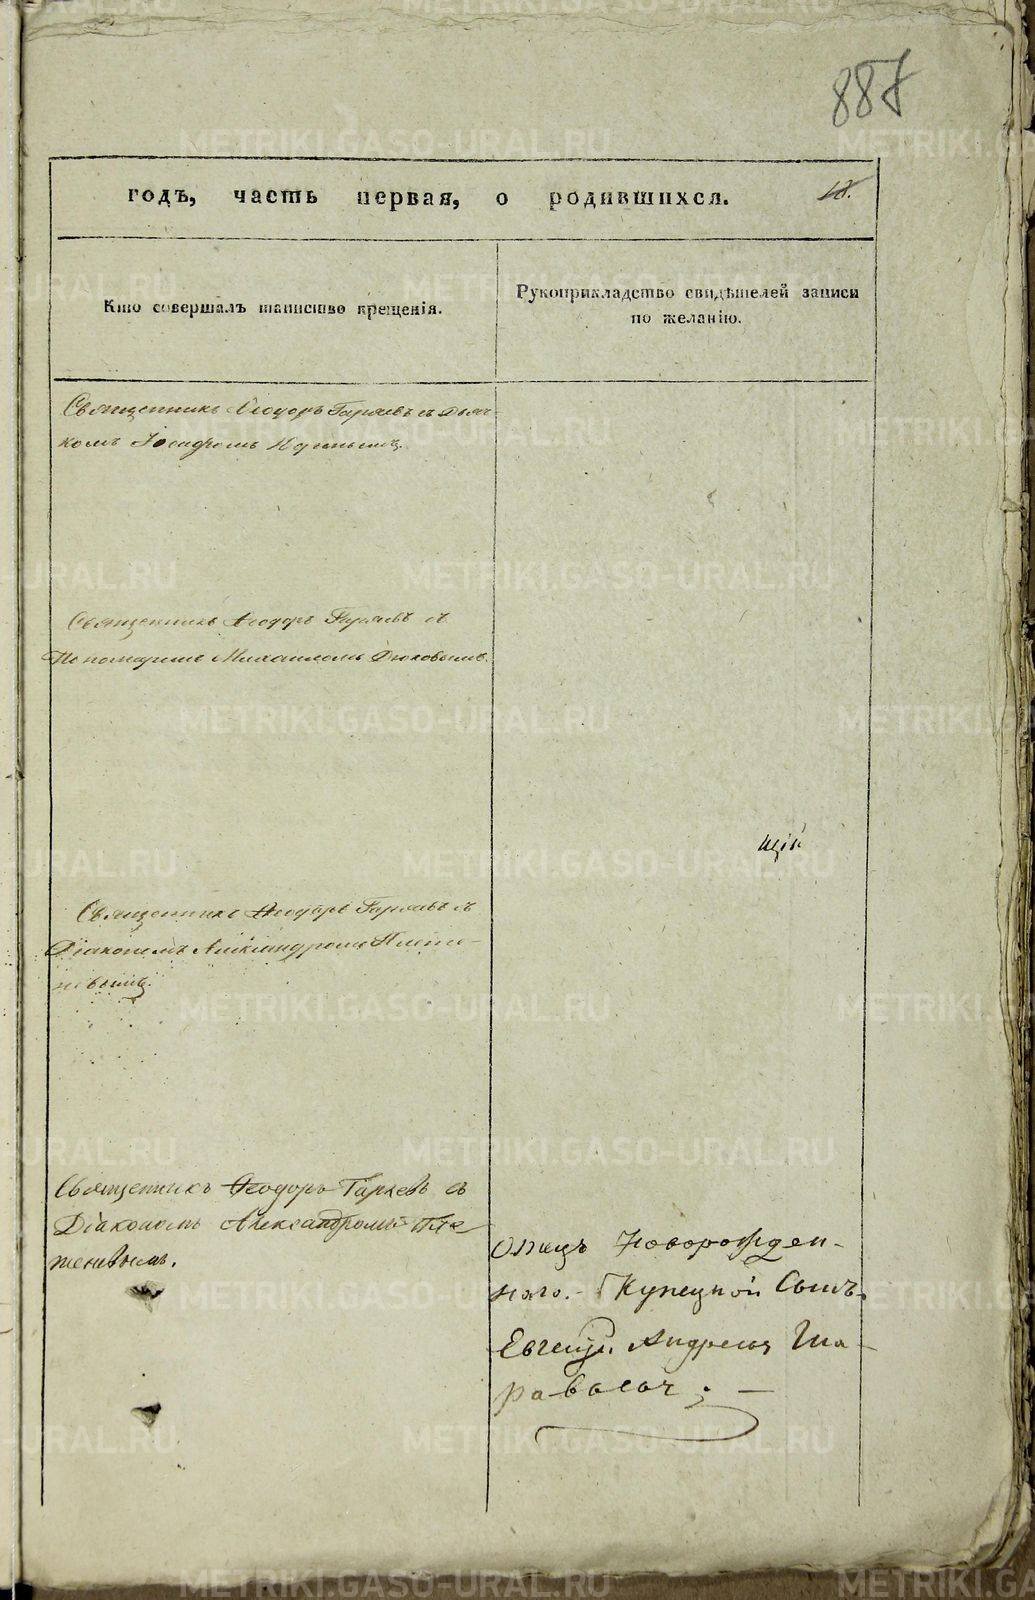 887
годъ, часть первая, о родившихся. 18.
Кто совершалъ таинство крещенія.
Рукоприкладство свидѣтелей записи
по желанію.
Священникъ Ѳеодоръ Гаряевъ съ Дьяч-
комъ
Священникъ Ѳеодоръ Гаряевъ съ
Пономаремъ Михаиломъ Дюковымъ.
щій
Священникъ Ѳеодоръ Гаряевъ съ
Діакономъ Александромъ Плете-
невымъ.
Священникъ Ѳеодоръ Гаряевъ съ
Діакономъ Александромъ Пле-
теневымъ.
Отецъ Новорожден-
наго. Купецкой Сынъ
Андреевъ Ша-
раваевъ
METRIKI.GASO-URAL.RU